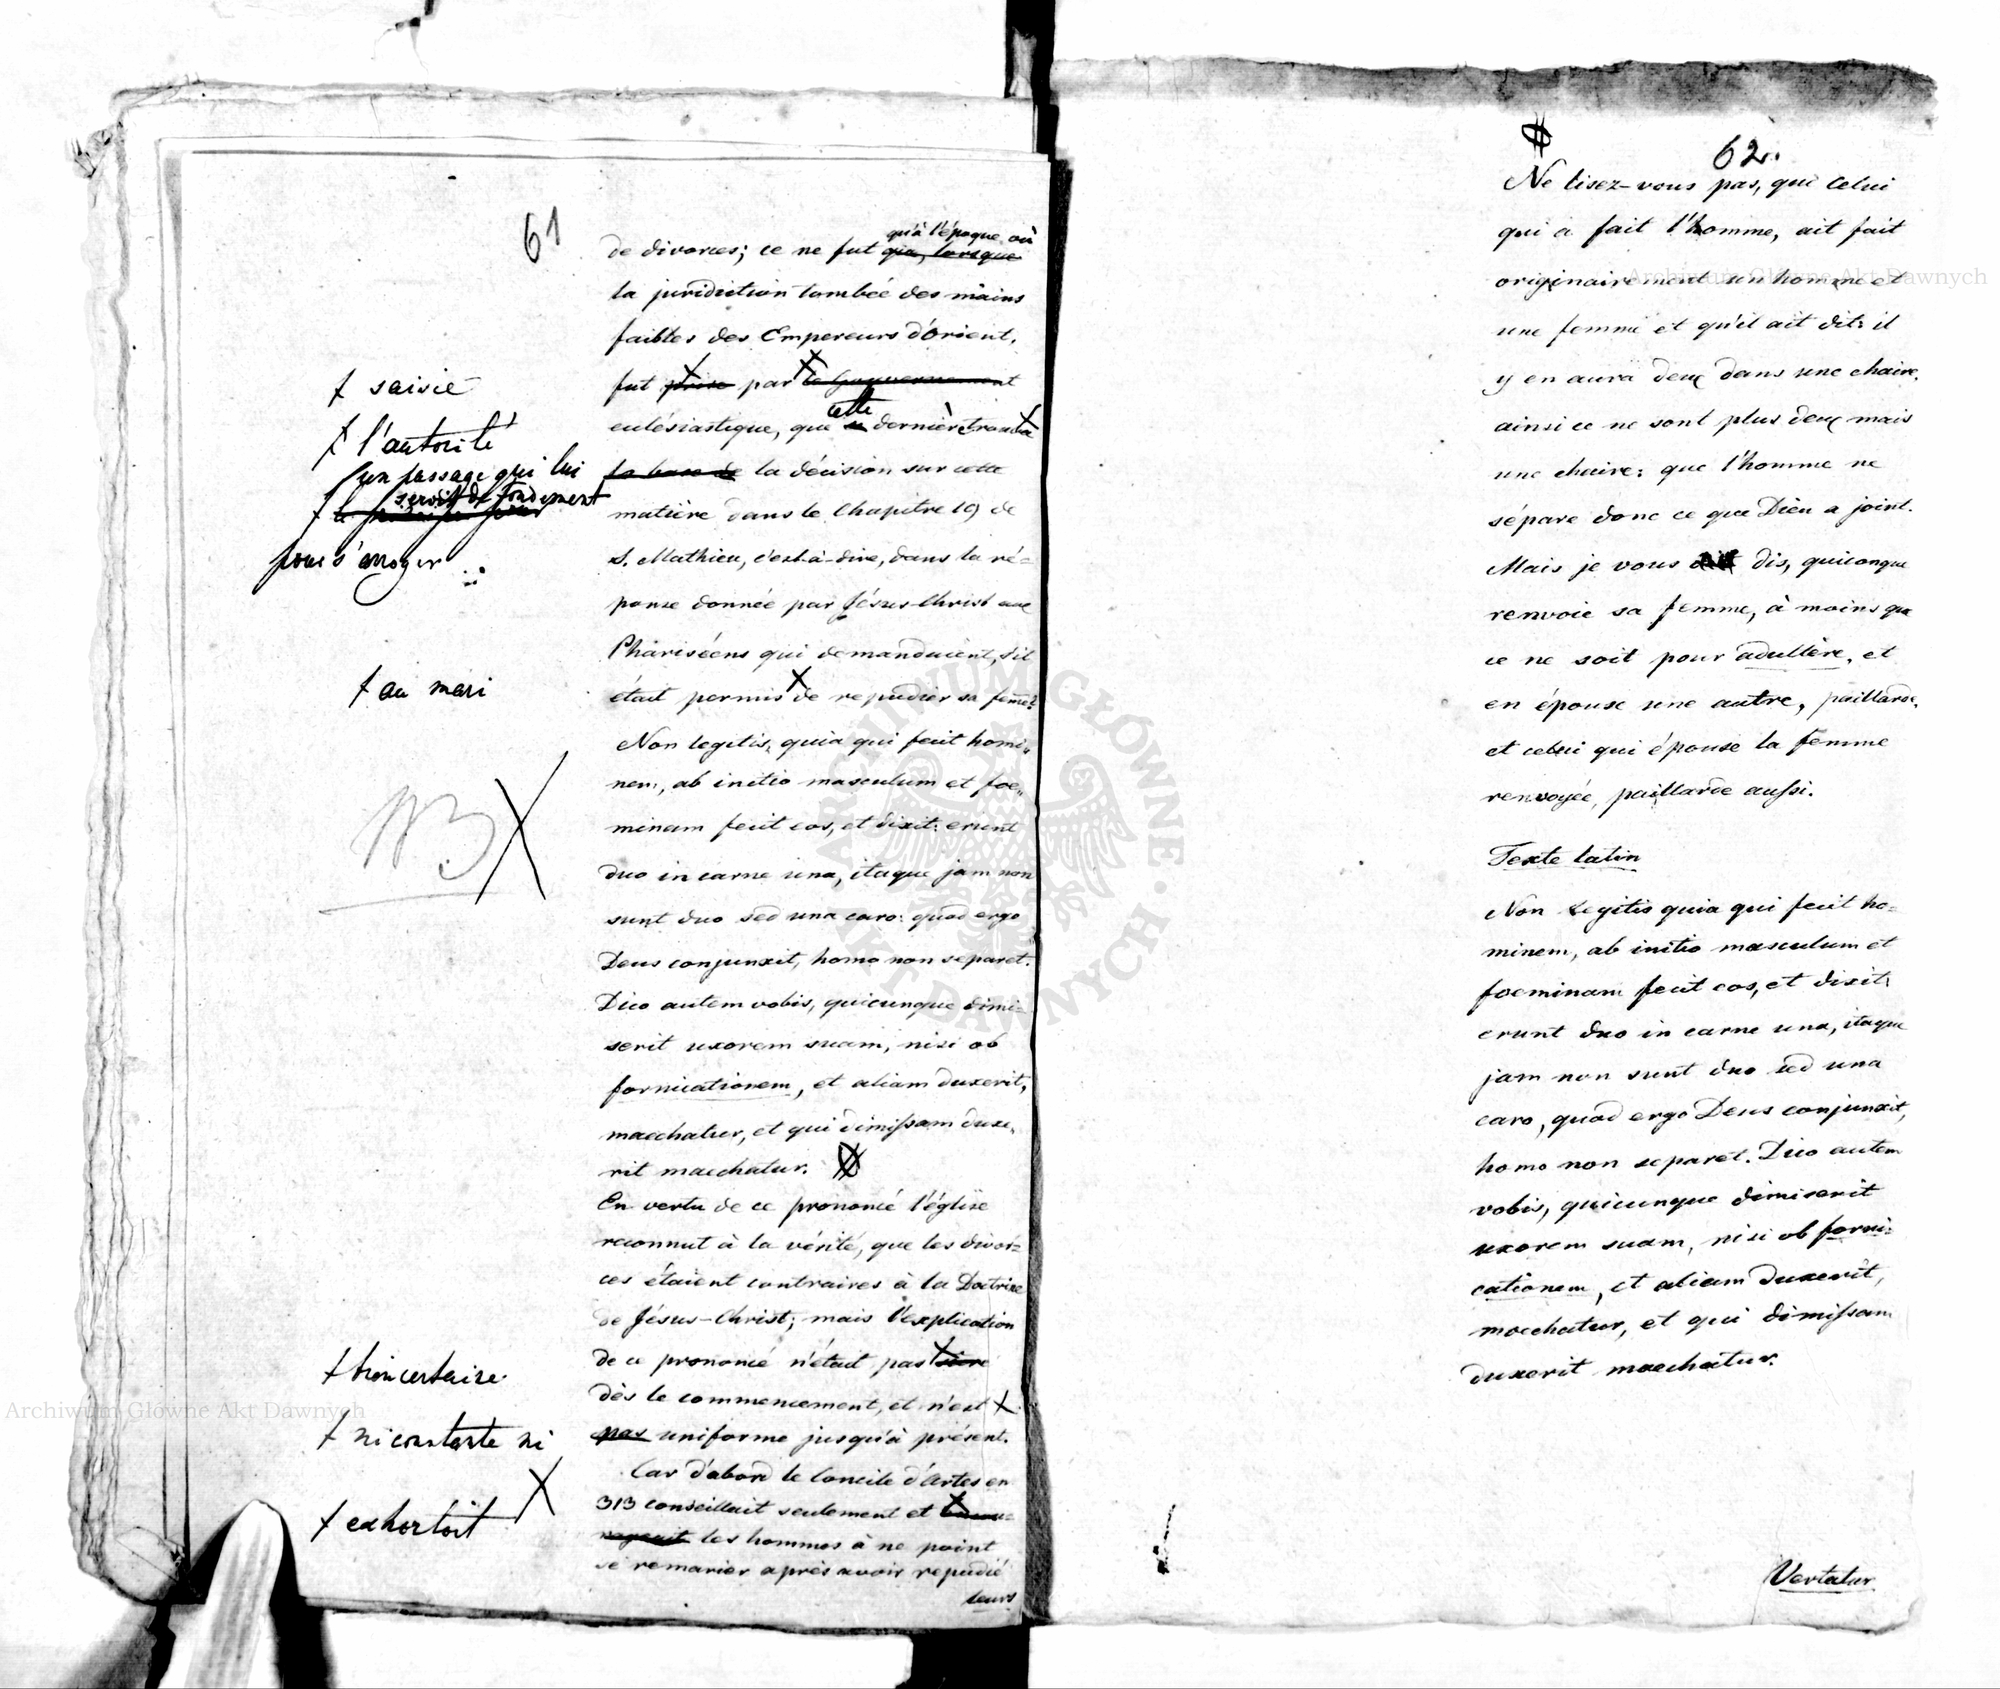 61
qu'à l'époque où
de divorces; ce ne fut que, lorsque
la juridiction tombée des mains
faibles des Empereurs d'Orient,
fut prise par le Gouvernement
cette
eclésiastique, que sa dernière trouva
la base de la décision sur cette
matière dans le Chapitre 19 de
S. Mathieu, c'est-à-dire, dans la ré-
ponse donnée par Jésus-Christ aux
Phariséens qui demandaient, s'il
était permis de repudier sa femme?
Non legitis, quia qui fecit homi„
nem, ab initio masculum et foe„
minam fecit eos, et dixit: erunt
duo in carne una, itaque jam non
sunt duo sed una caro: quod ergo
Deus conjunxit, homo non separet.
Dico autem vobis, quicunque dimi-
serit uxorem suam, nisi ob
fornicationem, et aliam duxerit,
maechatur, et qui dimissam duxe„
rit maechatur.
En vertu de ce prononcé l'église
reconnut à la vérité, que les divor-
ces étaient contraires à la Doctrine
de Jésus-Christ; mais l'explication
de ce prononcé n'était pas sûre
dès le commencement, et n'est
pas uniforme jusqu'à présent.
Car d'abord le Concile d'Arles en
313 conseillait seulement et encou-
rageait les hommes à ne point
se remarier après avoir repudié
leurs
saisie
l'autorité
un passage qui lui
servit de fondement
pour s'arroger
au mari
NB
bien certaine
ni constante ni
exhortoit
62.
Ne lisez-vous pas, qui celui
qui a fait l'homme, ait fait
originairement un homme et
une femme et qu'il ait dit: il
y en aura deux dans une chaire,
ainsi ce ne sont plus deux mais
une chaire: que l'homme ne
sépare donc ce que Dieu a joint.
Mais je vous dis, quiconque
renvoie sa femme, à moins que
ce ne soit pour adultère, et
en épouse une autre, paillarde,
et celui qui épouse la femme
renvoyée, paillarde aussi.
Texte latin
Non Legitis quia qui fecit ho-
minem, ab initio masculum et
foeminam fecit eos, et dixit:
erunt duo in carne una, itaque
jam non sunt duo sed una
caro, quod ergo Deus conjunxit,
homo non separet. Dico autem
vobis, quicunque dimiserit
uxorem suam, nisi ob forni-
cationem, et aliam duxerit,
moechatur, et qui dimissam
duxerit maechatur.
Vertatur
Archiwum Główne Akt Dawnych
Archiwum Główne Akt Dawnych
ARCHIWUM GŁÓWNE · AKT DAWNYCH ·